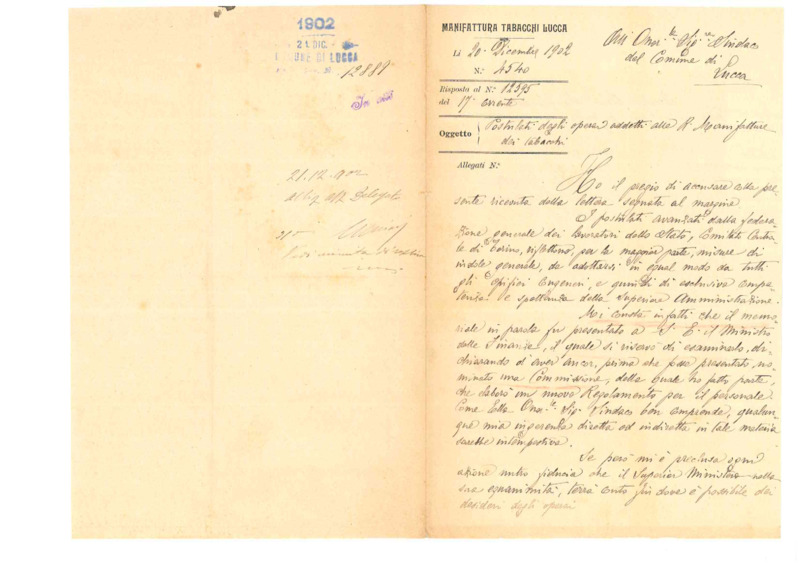 1902
21 DIC.
COMUNE DI LUCCA
12881
21.12.902
MANIFATTURA TABACCHI LUCCA
Li 20 Dicembre 1902
N.° 4540
Risposta al N.° 12395
del 17 corrente
Oggetto Postulati degli operai addetti alla R. Manifattura
dei tabacchi
Allegati N.°
All' Onor.le Sig.re Sindaco
del Comune di
Lucca
Ho il pregio di accusare alla pre
sente ricevuta della lettera segnata al margine.
I postulati avanzati dalla federa
zione generale dei lavoratori dello Stato, Comitato Centra
le di Torino, riflettono, per la maggior parte, misure di
indole generale, da adottarsi in egual modo da tutti
gli Opifici congeneri, e quindi di esclusiva compe
tenza e spettanza della Superiore Amministrazione.
Mi consta infatti che il memo
riale in parola fu presentato a S. E. il Ministro
delle Finanze, il quale si riservò di esaminarlo, di
chiarando d'aver ancor, prima che fosse presentato, no
minato una Commissione, della quale ho fatto parte,
che elaborò un nuovo Regolamento per il personale
Come Ella Onor.le Sig. Sindaco ben comprende, qualun
que mia ingerenza diretta od indiretta in tale materia
sarebbe intempestiva.
Se però mi è preclusa ogni
azione nutro fiducia che il Superior Ministero nella
sua equanimità, terrà conto fin dove è possibile dei
desideri degli operai